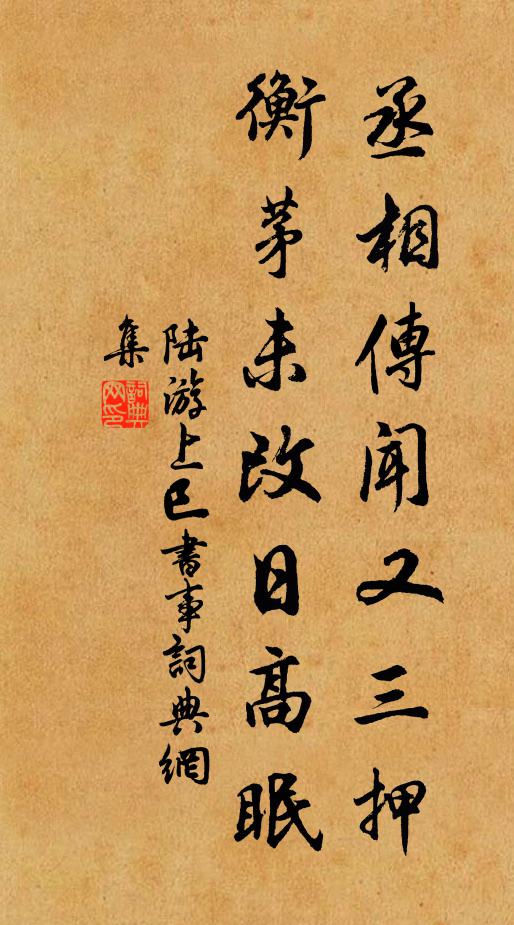 丞相傳聞又三押
衡茅未改日高眠
陆游上巳書事詞典網
集
詞典网印